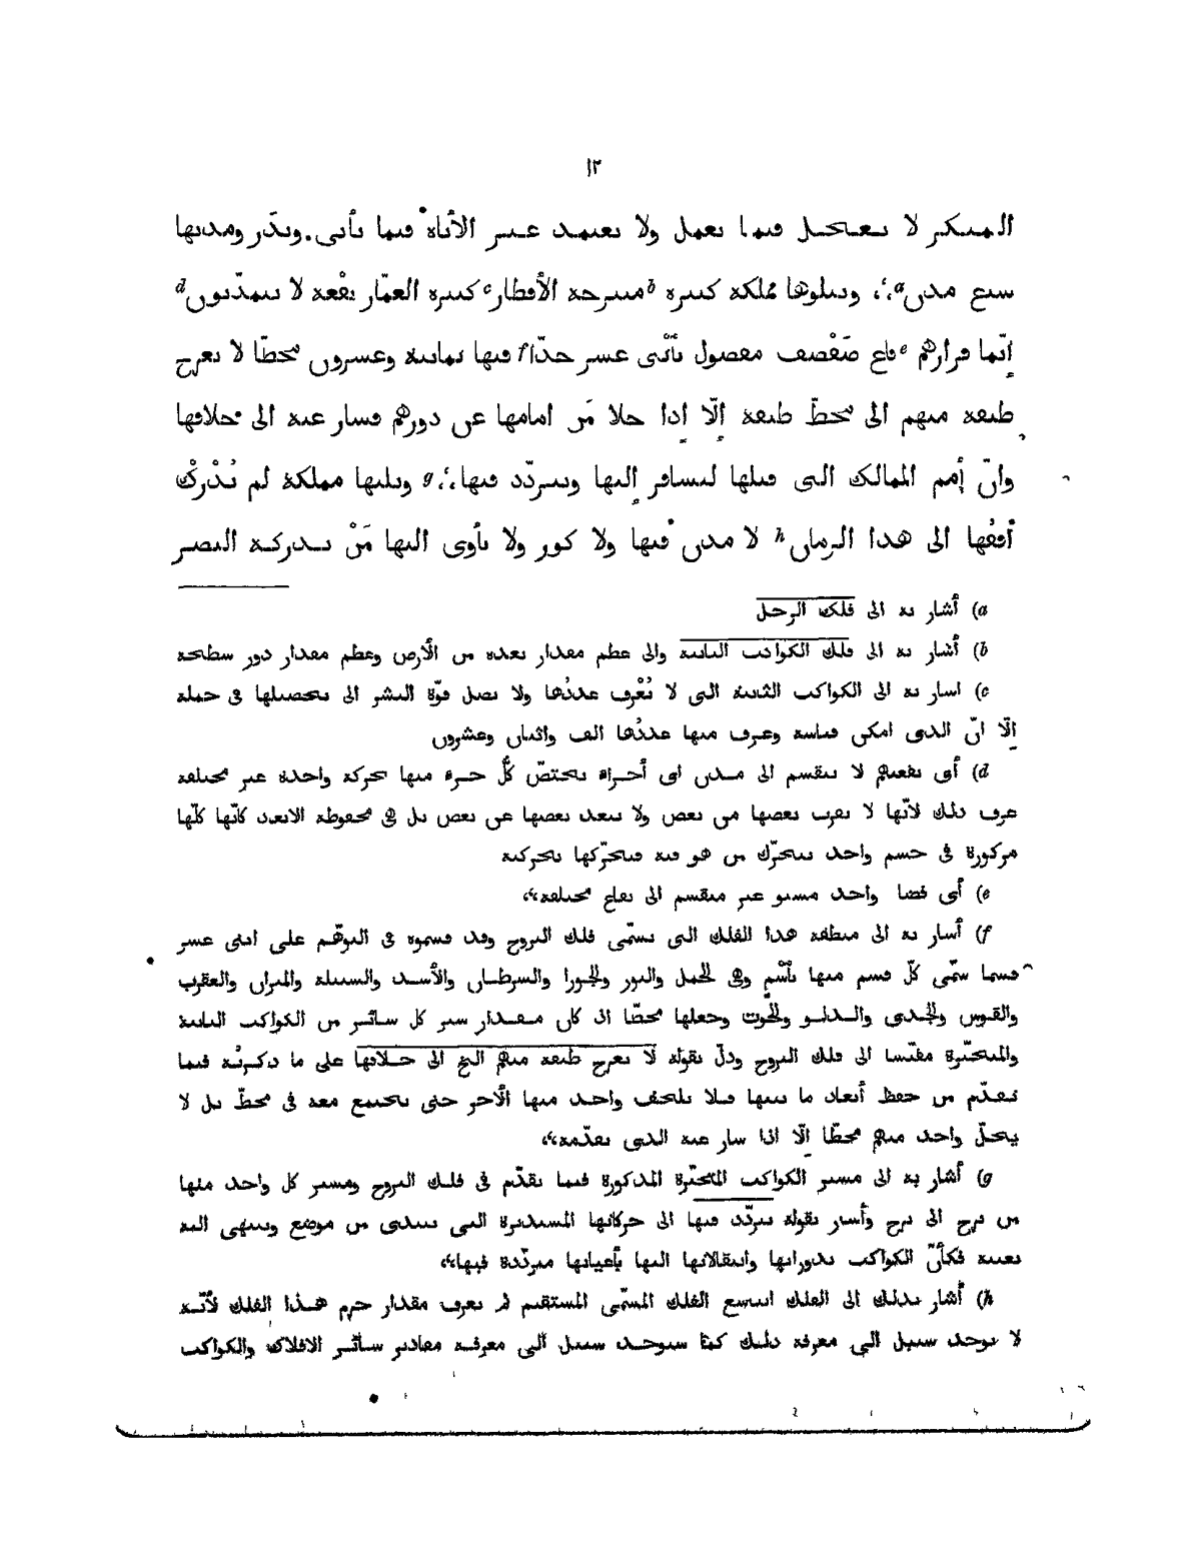 ١٢
الفكر لا يعجل فيما يعمل ولا يعتمد غير الأناة فيما يأتى ويذر ومدنها
سبع مدن a ويتلوها مملكة كبيرة b منتزحة الأقطار c كثيرة العمّار بقعة لا يتمدّنون d
إنّما قرارهم e قاع صَفْصف مفصول بأثْنى عشر حدّا f فيها ثمانية وعشرون محطّا لا تعرج
طبقة منهم الى محطّ طبقة إلّا إذا خلا مَن امامها عن دورهم فسار عنه الى خلافها
وانّ أمم الممالك التى قبلها ليسافر إليها ويتردّد فيها g ويليها مملكة لم يُدْرك
أفقُها الى هذا الزمان h لا مدن فيها ولا كور ولا يأوى اليها مَنْ يدركه البصر
a) أشار به الى فلك الزحل
b) أشار به الى فلك الكواكب الثابتة والى عظم مقدار بعده من الأرض وعظم مقدار دور سطحه
c) اشار به الى الكواكب الثابتة التى لا يُعْرف عددُها ولا تصل قوّة البشر الى تحصيلها فى جملة
إلّا انّ الذى امكن قياسه وعرف منها عددُها الف واثنان وعشرون
d) أى بقعتهم لا ينقسم الى مدن اى أجزاء يختصّ كُلّ جزء منها بحركة واحدة غير مختلفة
عرف ذلك لأنّها لا يقرب بعضها من بعض ولا يبعد بعضها عن بعض بل هى محفوظة الابعد كأنّها كلّها
مركوزة فى جسم واحد يتحرّك من هو فيه فيحرّكها بحركته
e) أى فضا واحد مستو غير منقسم الى بقاع مختلفة
f) أشار به الى منطقة هذا الفلك التى تسمّى فلك البروج وقد قسموه فى التوهّم على اثنى عشر
قسما سمّى كلّ قسم منها بأسْم وهى الحمل والثور والجوزا والسرطان والأسد والسنبلة والميزان والعقرب
والقوس والجدى والدلو والحوت وجعلها محطّا اذ كان مقدار سير كل سائر من الكواكب الثابتة
والمتحيّرة مقيسا الى فلك البروج ودلّ بقوله لا تعرج طبقة منهم الخ الى خلافها على ما ذكرتُه فيما
تقدّم من حفظ أبعاد ما بينها فلا يلحق واحد منها الأخر حتى يجتمع معه فى محطّ بل لا
يحلّ واحد منهم محطّا إلّا اذا سار عنه الذى تقدّمه
g) أشار به الى مسير الكواكب المتحيّرة المذكورة فيما تقدّم فى فلك البروج ومسير كل واحد منها
من برج الى برج وأشار بقوله يتردّد فيها الى حركاتها المستديرة التى تبتدى من موضع وينتهى اليه
بعينه فكأنّ الكواكب بدورانها وانتقالاتها اليها بأعيانها متردّدة فيها
h) أشار بذلك الى الفلك التسع الفلك المسمّى المستقيم لم يعرف مقدار جرم هذا الفلك لأنّه
لا يوجد سبيل الى معرفة ذلك كما سيوجد سبيل الى معرفة مقادير سائر الافلاك والكواكب